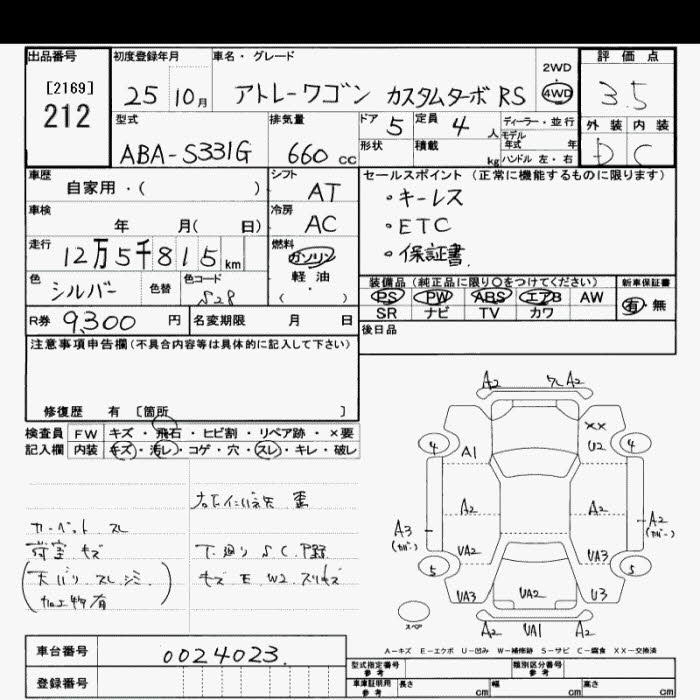 出品番号
[2169]
212
初度登録年月
25 10月
車名・グレード
アトレーワゴン カスタムターボRS
2WD
4WD
評価点
3.5
型式
ABA-S331G
排気量
660 cc
ドア 5
定員 4 人
ディーラー・並行
モデル
年式 年
形状
積載 kg
ハンドル 左・右
外装 内装
D C
車歴
自家用・( )
シフト
AT
セールスポイント (正常に機能するものに限ります)
・キーレス
・ETC
・保証書
車検
年 月( 日)
冷房
AC
走行
12万5千815 km
燃料
ガソリン
軽・油
( )
色
シルバー
色替
色コード
S28
装備品(純正品に限り○をつけてください)
PS PW ABS エアB AW
SR ナビ TV カワ
新車保証書
有・無
R券 9300 円
名変期限 月 日
後日品
注意事項申告欄(不具合内容等は具体的に記入して下さい)
修復歴 有 〔箇所 〕
検査員 FW キズ・飛石・ヒビ割・リペア跡・×要
記入欄 内装 キズ・汚レ・コゲ・穴・スレ・キレ・破レ
カーペット スレ
荷室 キズ
(天バリ スレ シミ)
加工物有
下廻り S C
キズ E W2 スリキズ
A2 A2
××
4 A1 U2 4
A2 A2
A3
(カバー)
A2
(カバー)
VA2 VA3
5 5
VA3 VA2 U3
A2 VA1 A2
スペア
A-キズ E-エクボ U-凹み W-補修跡 S-サビ C-腐食 XX-交換済
車台番号
0024023.
登録番号
型式指定番号
参考
類別区分番号
参考
車庫証明用
参考
長さ cm
幅 cm
高さ cm